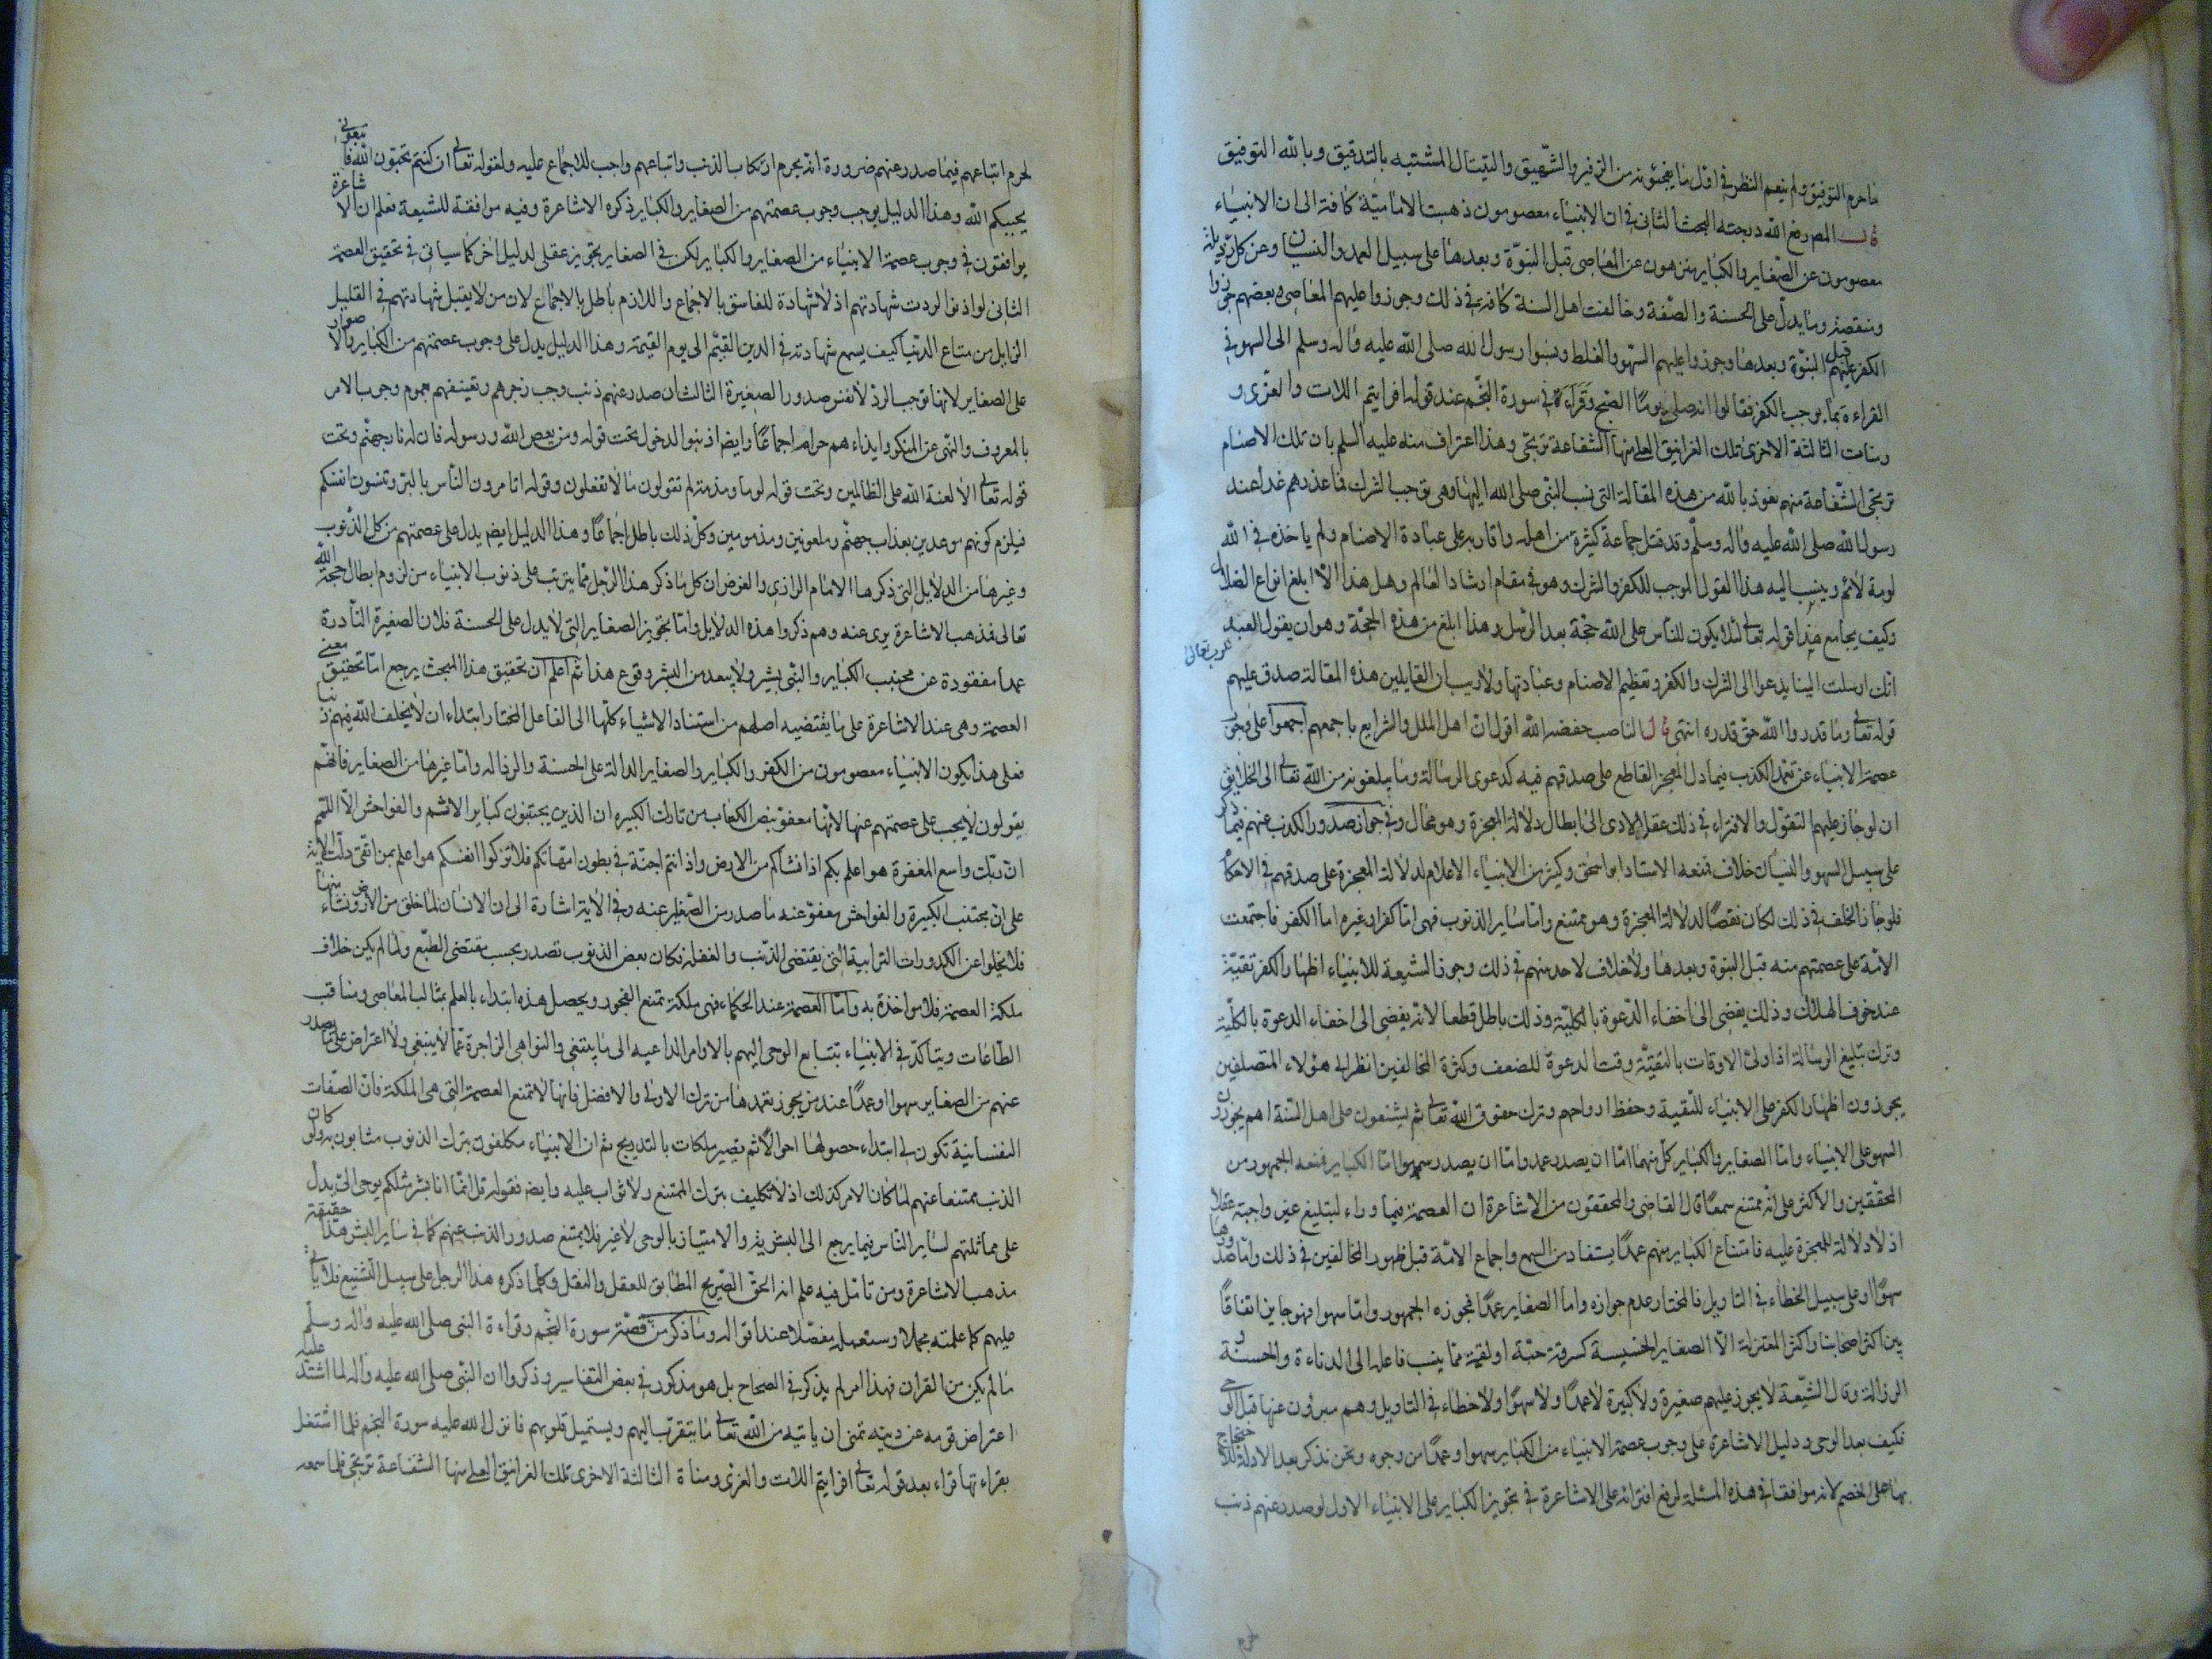 ما حرم التوفيق ولم ينعم النظر في اول ما يفجئونه من الزفير والشهيق والتيتال المشتبه بالتدقيق وبالله التوفيق
قال المص رفع الله درجته البحث الثاني في ان الانبياء معصومون ذهبت الامامية كافة الى ان الانبياء
معصومون عن الصغاير والكباير منزهون عن المعاصى قبل النبوة وبعدها على سبيل العمد والنسيان وعن كل رذيلة
ومنقصة وما يدل على الخسة والضعة وخالفت اهل السنة كافة في ذلك وجوزوا عليهم المعاصى وبعضهم جوزوا
الكفر عليهم قبل النبوة وبعدها وجوزوا عليهم السهو والغلط ونسبوا رسول الله صلى الله عليه واله وسلم الى السهو في
القراءة بما يوجب الكفر فقالوا انه صلى يوما الصبح وقراء في سورة النجم عند قوله افرايتم اللات والعزى و
منات الثالثة الاخرى تلك الغرانيق العلى منها الشفاعة ترتجى وهذا اعتراف منه عليه السلم بان تلك الاصنام
ترتجى الشفاعة منهم نعوذ بالله من هذه المقالة التي نسب النبي صلى الله اليها وهى توجب الشرك فما عذرهم غدا عند
رسول الله صلى الله عليه واله وسلم وقد قتل جماعة كثيرة من اهله واقاربه على عبادة الاصنام ولم ياخذه في الله
لومة لائم وينسب اليه هذا القول الموجب للكفر والشرك وهو في مقام ارشاد العالم وهل هذا الا ابلغ انواع الضلال
وكيف يجامع هذا قوله تعالى لئلا يكون للناس على الله حجة بعد الرسل وهذا ابلغ من هذه الحجة وهو ان يقول العبد
انك ارسلت الينا يدعوا الى الشرك والكفر وتعظيم الاصنام وعبادتها ولا ريب ان القايلين هذه المقالة صدق عليهم
قوله تعالى وما قدروا الله حق قدره انتهى قال الناصب خفضه الله اقول ان اهل الملل والشرايع باجمعهم اجمعوا على وجوب
عصمة الانبياء عن تعمد الكذب فيما دل المعجز القاطع على صدقهم فيه كدعوى الرسالة وما يبلغونه من الله تعالى الى الخلايق
ان لو جاز عليهم التقول والافتراء في ذلك عقلا لادى الى ابطال دلالة المعجزة وهو محال وفي جواز صدور الكذب عنهم فيما ذكر
على سبيل السهو والنسيان خلاف فمنعه الاستاد ابو اسحق وكثير من الانبياء الاعلام لدلالة المعجزة على صدقهم في الاحكام
فلو جاز الخلف في ذلك لكان نقضا لدلالة المعجزة وهو ممتنع واما ساير الذنوب فهى اما كفرا وغيره اما الكفر فاجتمعت
الامة على عصمتهم منه قبل النبوة وبعدها ولا خلاف لاحد منهم في ذلك وجوز الشيعة للانبياء اظهار الكفر تقية
عند خوف الهلاك وذلك يفضى الى اخفاء الدعوة بالكلية وذلك باطل قطعا لانه يفضى الى اخفاء الدعوة بالكلية
وترك تبليغ الرسالة اذا ولى الاوقات بالتقية وقت الدعوة للضعف وكثرة المخالفين انظر الى هؤلاء المتصلفين
يجوزون اظهار الكفر على الانبياء للتقية وحفظ ارواحهم وترك حقوق الله تعالى ثم يشنعون على اهل السنة اهم يجوزون
السهو على الانبياء واما الصغاير والكباير كل منهما اما ان يصدر عمدا واما ان يصدر سهوا اما الكباير فمنعه الجمهور من
المحققين والاكثر على انه ممتنع سمعا قال القاضى والمحققون من الاشاعرة ان العصمة فيما وراء التبليغ غير واجبة عقلا
اذ لا دلالة للمعجزة عليه فامتناع الكباير منهم عمدا يستفاد من السمع واجماع الامة قبل ظهور المخالفين في ذلك واما صدورها
سهوا او على سبيل الخطاء في التاويل فالمختار عدم جوازه واما الصغاير عمدا فجوزه الجمهور واما سهوا فهو جايز اتفاقا
بين اكثر اصحابنا واكثر المعتزلة الا الصغاير الخسيسة كسرقة حبة او لقمة مما ينسب فاعله الى الدناءة والخسة و
الرزالة وقال الشيعة لا يجوز عليهم صغيرة ولا كبيرة لا عمدا ولا سهوا ولا خطاء في التاويل وهم مبرؤن عنها قبل الوحى
فكيف بعد الوحى ودليل الاشاعرة على وجوب عصمة الانبياء من الكباير سهوا وعمدا من وجوه ونحن نذكر بعد الادلة للاحتجاج
بها على الخصم لانه موافقا في هذه المسئلة لرفع افترائه على الاشاعرة في تجويز الكباير على الانبياء الاول لو صدر عنهم ذنب
لحرم اتباعهم فيما صدر عنهم ضرورة انه يحرم ارتكاب الذنب واتباعهم واجب للاجماع عليه ولقوله تعالى ان كنتم تحبون الله فاتبعونى
يحببكم الله وهذا الدليل يوجب وجوب عصمتهم من الصغاير والكباير ذكره الاشاعرة وفيه موافقة للشيعة فعلم ان الاشاعرة
يوافقون في وجوب عصمة الانبياء من الصغاير والكباير لكن في الصغاير تجويز عقلى لدليل اخر كما سياتى في تحقيق العصمة
الثانى لو اذنبوا لردت شهادتهم اذ لا شهادة للفاسق بالاجماع واللازم باطل بالاجماع لان من لا يقبل شهادتهم في القليل
الزايل من متاع الدنيا كيف يسمع شهادته في الدين القيم الى يوم القيمة وهذا الدليل يدل على وجوب عصمتهم من الكباير والاصرار
على الصغاير لانها توجب الرد لا نفس صدور الصغيرة الثالث ان صدر عنهم ذنب وجب زجرهم وتعنيفهم لعموم وجوب الامر
بالمعروف والنهى عن المنكر وايذاء هم حرام اجماعا وايضا اذنبوا لدخلوا تحت قوله ومن يعص الله ورسوله فان له نار جهنم وتحت
قوله تعالى الا لعنة الله على الظالمين وتحت قوله لوما ومذمة لم تقولون ما لا تفعلون وقوله اتامرون الناس بالبر وتنسون انفسكم
فيلزم كونهم موعدين بعذاب جهنم وملعونين ومذمومين وكل ذلك باطل اجماعا وهذا الدليل ايضا يدل على عصمتهم من كل الذنوب
وغيرها من الدلايل التي ذكرها الامام الرازى والغرض ان كل ما ذكر هذا الرجل مما يترتب على ذنوب الانبياء من لزوم ابطال حجة الله
تعالى فمذهب الاشاعرة برى عنه وهم ذكروا هذه الدلايل واما تجويز الصغاير التي لا يدل على الخسة فلان الصغيرة النادرة
عمدا معفوة عن مجتنب الكباير والنبى بشر ولا يبعد من البشر وقوع هذا ثم اعلم ان تحقيق هذا المبحث يرجع الى تحقيق معنى
العصمة وهى عند الاشاعرة على ما يقتضيه اصلهم من استناد الاشياء كلها الى الفاعل المختار ابتداء ان لا يخلق الله فيهم ذنبا
فعلى هذا يكون الانبياء معصومون من الكفر والكباير والصغاير الدالة على الخسة والرذالة واما غيرها من الصغاير فانهم
يقولون لا يجب على عصمتهم عنها لانها معفوة بنص الكتاب من تارك الكبيرة ان الذين يجتنبون كباير الاثم والفواحش الا اللمم
ان ربك واسع المغفرة هو اعلم بكم اذ انشاكم من الارض واذ انتم اجنة في بطون امهاتكم فلا تزكوا انفسكم هو اعلم بمن اتقى دلت الاية
على ان مجتنب الكبيرة والفواحش معفو عنه ما صدر من الصغاير عنه وفي الاية اشارة الى ان الانسان لما خلق من الارض ونشاء منها
فلا يخلوا عن الكدورات الترابية التي يقتضى الذنب والغفلة فكان بعض الذنوب تصدر بحسب مقتضى الطبع ولما لم يكن خلاف
ملكة العصمة فلا مواخذة به واما العصمة عند الحكماء فهى ملكة تمنع الفجور ويحصل هذه ابتداء بالعلم بمثالب المعاصى ومناقب
الطاعات ويتاكد في الانبياء بتتابع الوحى اليهم بالاوامر الداعية الى ما ينبغى والنواهى الزاجرة عما لا ينبغى ولا اعتراض على ما يصدر
عنهم من الصغاير سهوا او عمدا عند من يجوز تعمدها من ترك الاولى والافضل فانها لا تمنع العصمة التي هى الملكة فان الصفات
النفسانية تكون في ابتداء حصولها احوالا ثم تصير ملكات بالتدريج ثم ان الانبياء مكلفون بترك الذنوب مثابون به ولو كان
الذنب ممتنعا عنهم لما كان الامر كذلك اذ لا تكليف بترك الممتنع ولا ثواب عليه وايضا فقوله قل انما انا بشر مثلكم يوحى الى يدل
على مماثلتهم لساير الناس فيما يرجع الى البشرية والامتياز بالوحى لا غير فلا يمتنع صدور الذنب عنهم كما في ساير البشر هذا حقيقة
مذهب الاشاعرة ومن تامل فيه علم انه الحق الصريح المطابق للعقل والنقل وكلما ذكره هذا الرجل على سبيل التشنيع فلا ياتى
عليهم كما علمته مجملا وستعلمه مفصلا عند اقواله وما ذكر من قصة سورة النجم وقراءة النبى صلى الله عليه واله وسلم
ما لم يكن من القران فهذا امر لم يذكر في الصحاح بل هو مذكور في بعض التفاسير وذكروا ان النبى صلى الله عليه واله لما اشتد عليه
اعتراض قومه عن دينه تمنى ان ياتيه من الله تعالى ما يتقرب اليهم ويستميل قلوبهم فانزل الله عليه سورة النجم فلما اشتغل
بقراءتها قراء بعد قوله تعالى افرايتم اللات والعزى ومناة الثالثة الاخرى تلك الغرانيق العلى منها الشفاعة ترتجى فلما سمعه